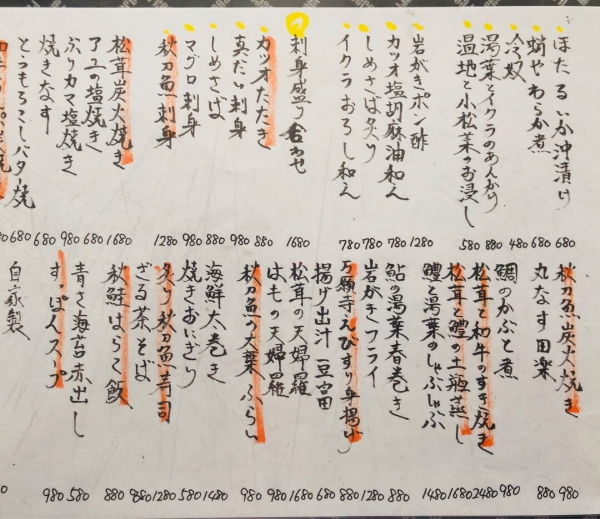 ほたるいか沖漬け 680
蛸やわらか煮 680
冷奴 480
湯葉とイクラのあんかけ 880
湿地と小松菜のお浸し 580
岩がきポン酢 1280
カツオ塩胡麻油和え 780
しめさば炙り 780
イクラおろし和え 780
刺身盛り合わせ 1680
カツオたたき 880
真だい刺身 980
しめさば 880
マグロ刺身 980
秋刀魚刺身 1280
松茸炭火焼き 1680
アユの塩焼き 680
ぶりカマ塩焼き 980
焼きなす 680
とうもろこしバター焼 680
秋刀魚炭火焼き 980
丸なす田楽 880
鯛のかぶと煮 980
松茸と和牛のすき焼き 2480
松茸と鱧の土瓶蒸し 1680
鱧と湯葉のしゃぶしゃぶ 1480
鮎の湯葉春巻き 880
岩がきフライ 1280
万願寺えびすり身揚げ 880
揚げ出汁豆富 680
松茸の天婦羅 1680
はもの天婦羅 980
秋刀魚の大葉ふらい 980
海鮮太巻き 1480
焼きおにぎり 580
炙り秋刀魚寿司 1280
ざる茶そば 980
秋鮭はらこ飯 880
青さ海苔赤出し 580
すっぽんスープ 980
自家製